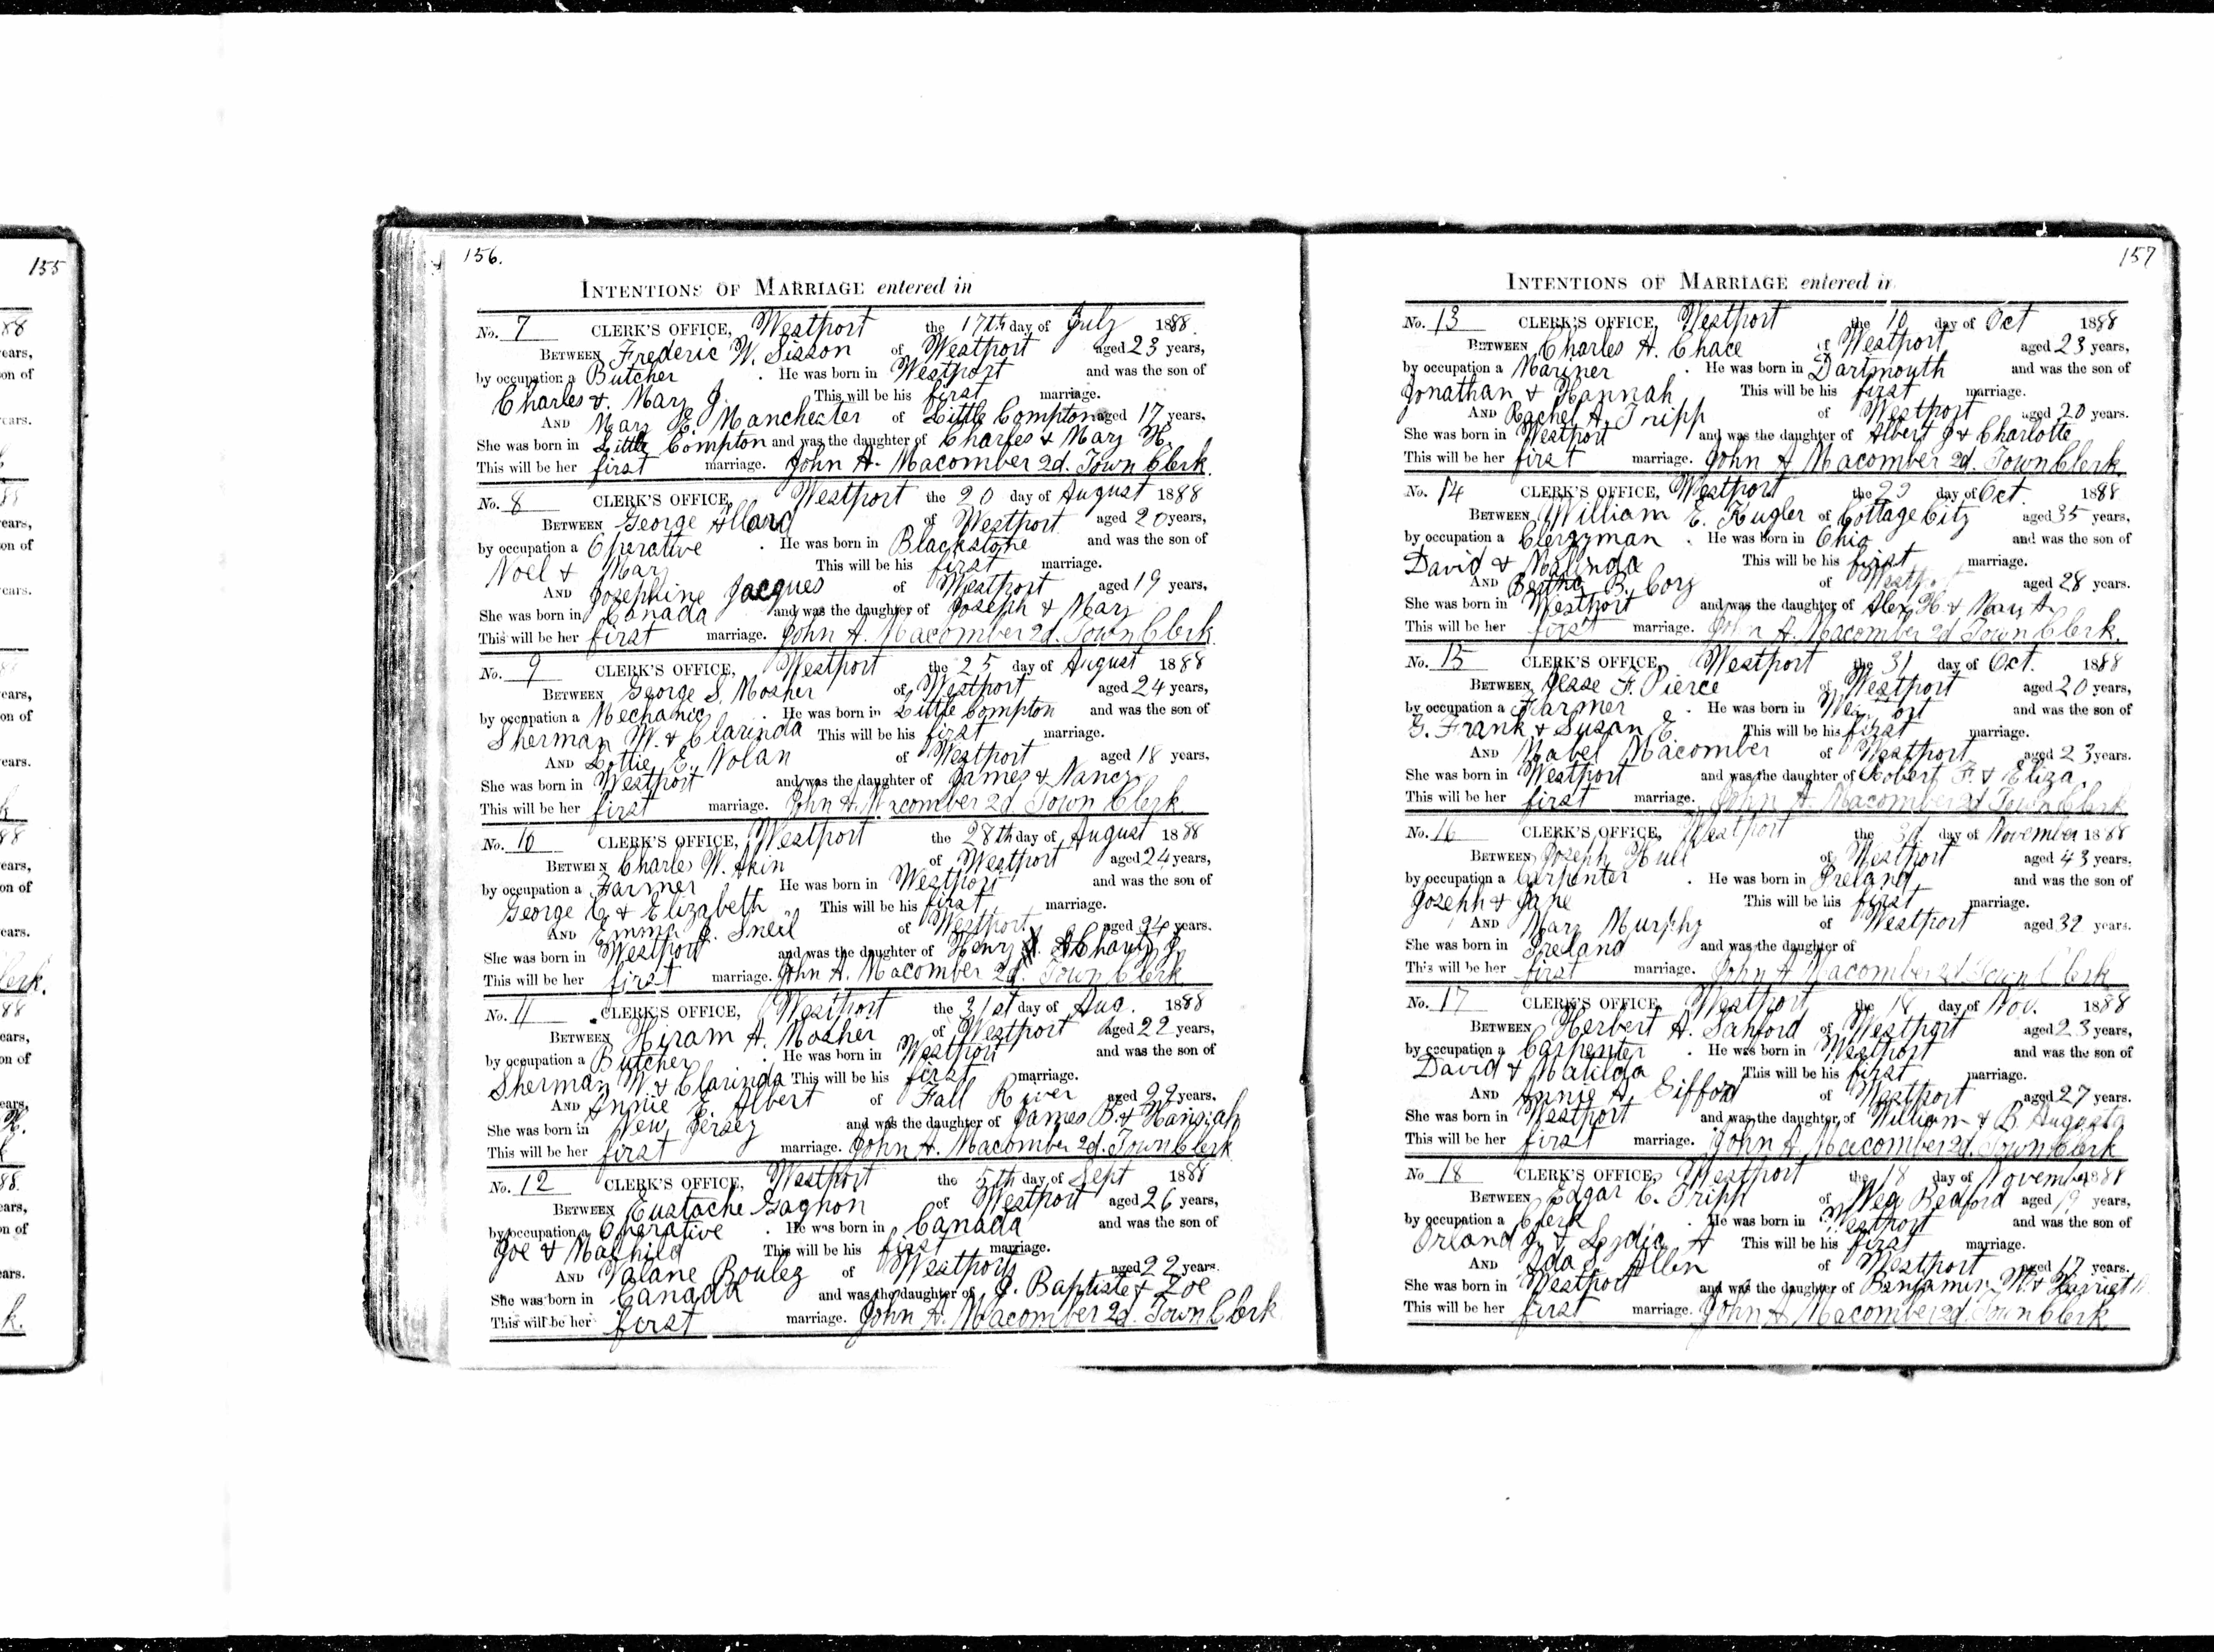 155
156.
INTENTIONS OF MARRIAGE entered in
No. 7 CLERK'S OFFICE, Westport the 17th day of July 1888.
BETWEEN Frederic W. Sisson of Westport aged 23 years,
by occupation a Butcher . He was born in Westport and was the son of
Charles & Mary J. This will be his first marriage.
AND Mary E. Manchester of Little Compton aged 17 years.
She was born in Little Compton and was the daughter of Charles & Mary H.
This will be her first marriage. John A. Macomber 2d. Town Clerk.
No. 8 CLERK'S OFFICE, Westport the 20 day of August 1888
BETWEEN George Allard of Westport aged 20 years,
by occupation a Operative . He was born in Blackstone and was the son of
Noel & Mary This will be his first marriage.
AND Josephine Jacques of Westport aged 19 years,
She was born in Canada and was the daughter of Joseph & Mary
This will be her first marriage. John A. Macomber 2d. Town Clerk.
No. 9 CLERK'S OFFICE, Westport the 25 day of August 1888
BETWEEN George S. Mosher of Westport aged 24 years,
by occupation a Mechanic . He was born in Little Compton and was the son of
Sherman W. & Clarinda This will be his first marriage.
AND Lottie E. Nolan of Westport aged 18 years,
She was born in Westport and was the daughter of James & Nancy
This will be her first marriage. John A. Macomber 2d Town Clerk
No. 10 CLERK'S OFFICE, Westport the 28th day of August 1888
BETWEEN Charles W. Akin of Westport aged 24 years,
by occupation a Farmer He was born in Westport and was the son of
George C. & Elizabeth This will be his first marriage.
AND Emma J. Snell of Westport aged 24 years.
She was born in Westport and was the daughter of Henry &
This will be her first marriage. John A. Macomber 2d. Town Clerk
No. 11 CLERK'S OFFICE, Westport the 31st day of Aug. 1888
BETWEEN Hiram A. Mosher of Westport aged 22 years,
by occupation a Butcher . He was born in Westport and was the son of
Sherman W. & Clarinda This will be his first marriage.
AND Annie E. Albert of Fall River aged 22 years.
She was born in New Jersey and was the daughter of James B. &
This will be her first marriage. John A. Macomber 2d. Town Clerk
No. 12 CLERK'S OFFICE, Westport the 5th day of Sept 1888
BETWEEN Eustache Gagnon of Westport aged 26 years,
by occupation a Operative . He was born in Canada and was the son of
Joe & Mathild This will be his first marriage.
AND Valane Boulez of Westport aged 22 years.
She was born in Canada and was the daughter of J. Baptiste & Zoe
This will be her first marriage. John A. Macomber 2d. Town Clerk
157
INTENTIONS OF MARRIAGE entered in
No. 13 CLERK'S OFFICE, Westport the 10 day of Oct 1888
BETWEEN Charles A. Chace of Westport aged 23 years,
by occupation a Mariner . He was born in Dartmouth and was the son of
Jonathan & Hannah This will be his first marriage.
AND Rachel A. Tripp of Westport aged 20 years.
She was born in Westport and was the daughter of Albert J & Charlotte
This will be her first marriage. John A Macomber 2d. Town Clerk
No. 14 CLERK'S OFFICE, Westport the 23 day of Oct. 1888
BETWEEN William E. Kugler of Cottage City aged 35 years,
by occupation a Clergyman . He was born in Ohio and was the son of
David & Malinda This will be his first marriage.
AND Bertha B. Cory of Westport aged 28 years.
She was born in Westport and was the daughter of Alex. H. & Mary A.
This will be her first marriage. John A. Macomber 2d Town Clerk.
No. 15 CLERK'S OFFICE, Westport the 31 day of Oct. 1888
BETWEEN Jesse F. Pierce of Westport aged 20 years,
by occupation a Farmer . He was born in Westport and was the son of
G. Frank & Susan E. This will be his first marriage.
AND Mabel Macomber of Westport aged 23 years.
She was born in Westport and was the daughter of Robert F. & Eliza.
This will be her first marriage. John A. Macomber 2d Town Clerk
No. 16 CLERK'S OFFICE, Westport the day of November 1888
BETWEEN Joseph Hull of Westport aged 43 years.
by occupation a Carpenter . He was born in Ireland and was the son of
Joseph & Jane This will be his first marriage.
AND Mary Murphy of Westport aged 32 years.
She was born in Ireland and was the daughter of
This will be her first marriage. John A Macomber 2d Town Clerk
No. 17 CLERK'S OFFICE, Westport the 18 day of Nov. 1888
BETWEEN Herbert A. Sanford of Westport aged 23 years,
by occupation a Carpenter . He was born in Westport and was the son of
David & Matilda This will be his first marriage.
AND Annie A. Gifford of Westport aged 27 years.
She was born in Westport and was the daughter of William & B. Augusta
This will be her first marriage. John A Macomber 2d. Town Clerk
No. 18 CLERK'S OFFICE, Westport the 18 day of November 1888
BETWEEN Edgar C. Tripp of New Bedford aged 19 years,
by occupation a Clerk . He was born in Westport and was the son of
Orland J. & Lydia A This will be his first marriage.
AND Ida S. Allen of Westport aged 17 years.
She was born in Westport and was the daughter of Benjamin M. & Harriet
This will be her first marriage. John A Macomber 2d Town Clerk